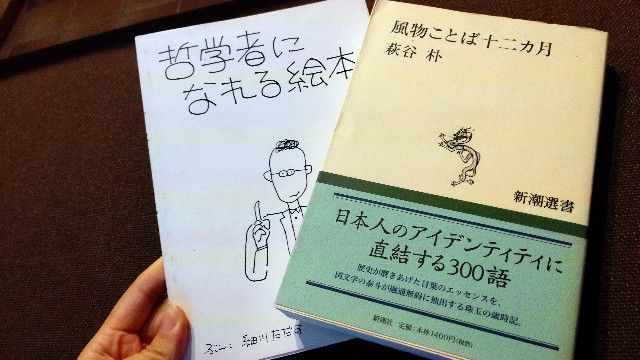 哲学者に
なれる絵本
風物ことば十二カ月
萩谷 朴
新潮選書
日本人のアイデンティティに
直結する300語
歴史が磨きあげた言葉のエッセンスを、
国文学の泰斗が融通無碍に抽出する珠玉の歳時記。
新潮社 定価:本体1400円(税別)